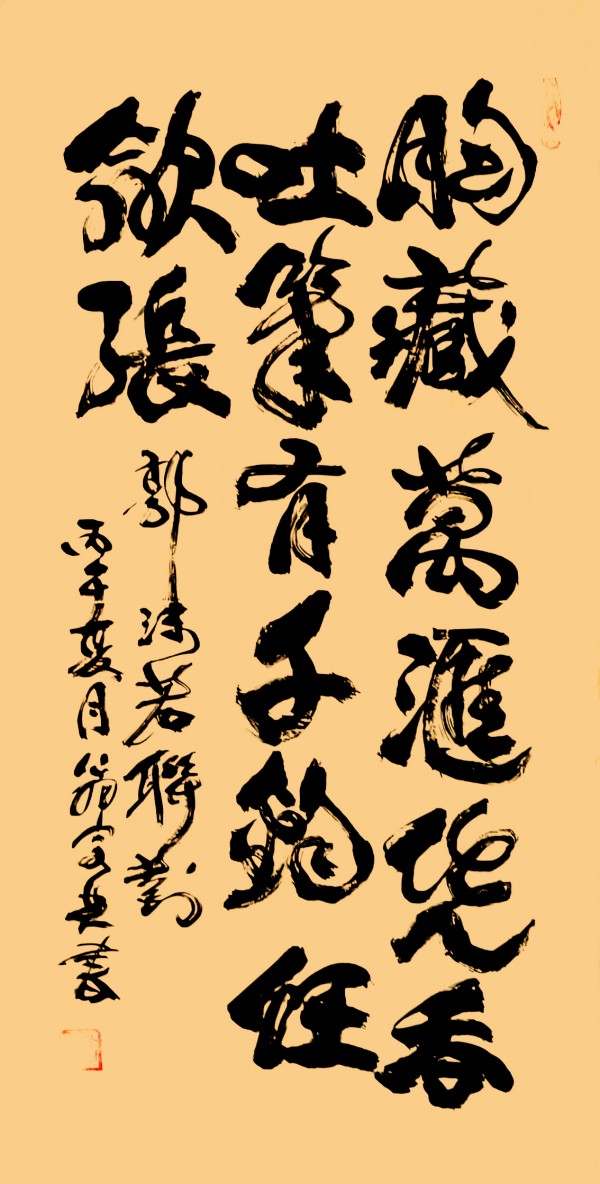 胸藏萬滙凭吞
吐筆有千鈞任
歙張
郭沫若聯對
丙午夏月翁書